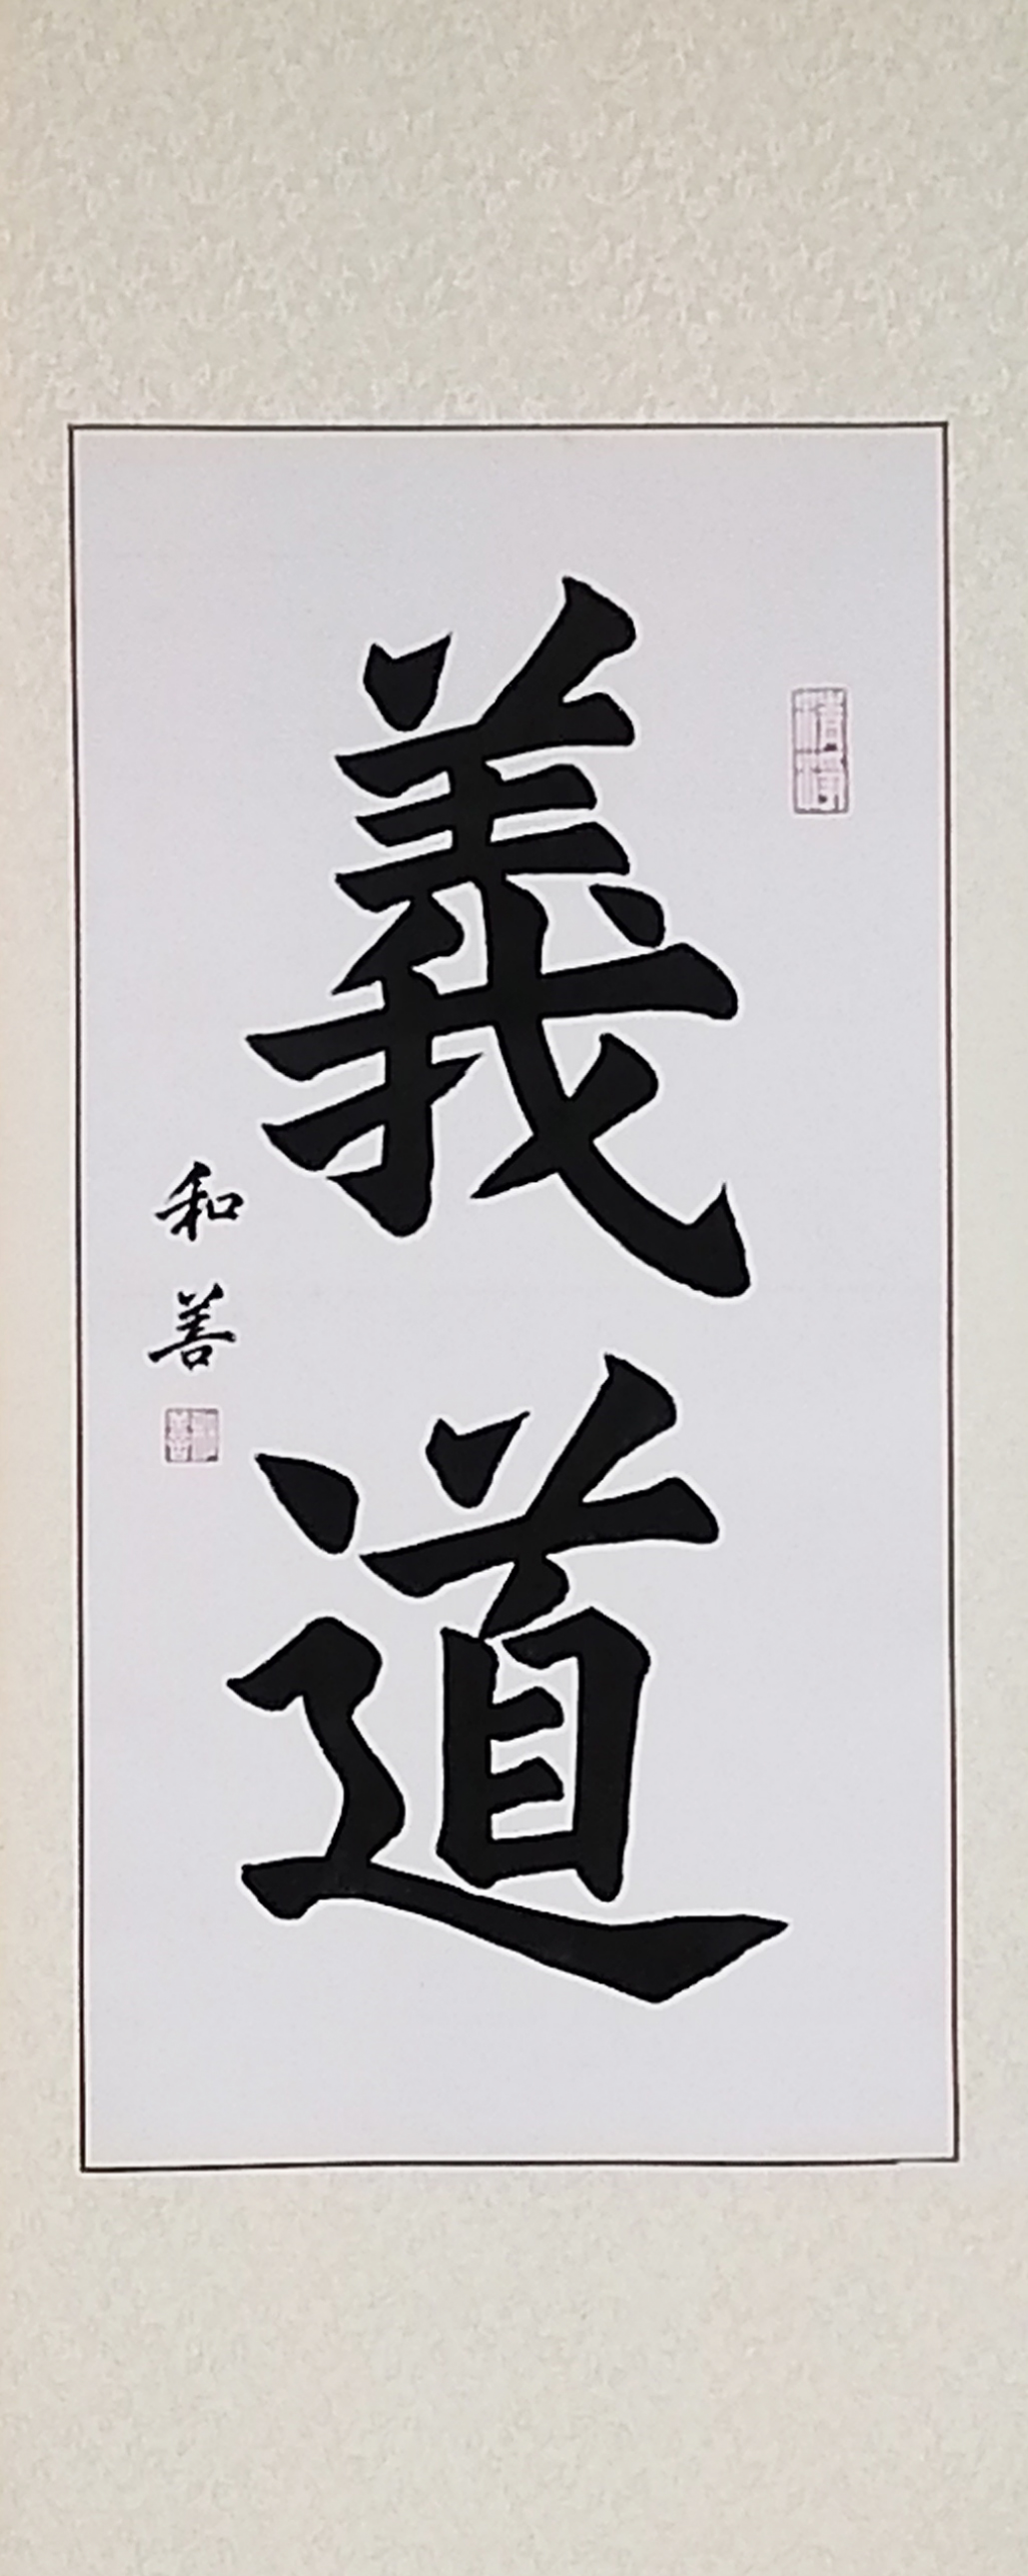 義道
和善